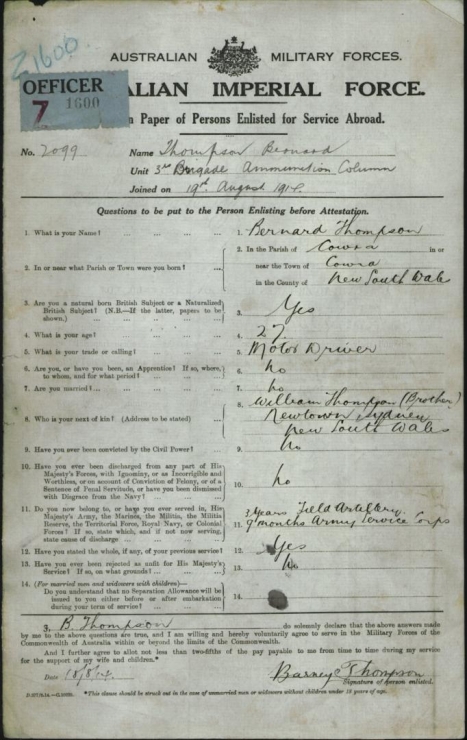 Z1600
AUSTRALIAN MILITARY FORCES.
OFFICER
7 1600
ALIAN IMPERIAL FORCE.
n Paper of Persons Enlisted for Service Abroad.
No. 2099 Name Thompson Bernard
Unit 3rd Brigade Ammunition Column
Joined on 19th August 1914
Questions to be put to the Person Enlisting before Attestation.
1. What is your Name? 1. Bernard Thompson
2. In or near what Parish or Town were you born? 2. In the Parish of Cowra in or
near the Town of Cowra
in the County of New South Wales
3. Are you a natural born British Subject or a Naturalised
British Subject? (N.B.—If the latter, papers to be
shown.) 3. Yes
4. What is your age? 4. 27
5. What is your trade or calling? 5. Motor Driver
6. Are you, or have you been, an Apprentice? If so, where,
to whom, and for what period? 6. no
7. Are you married? 7. no
8. Who is your next of kin? (Address to be stated) 8. William Thompson (Brother)
Newtown Sydney
New South Wales
9. Have you ever been convicted by the Civil Power? 9. no
10. Have you ever been discharged from any part of His
Majesty's Forces, with Ignominy, or as Incorrigible and
Worthless, or on account of Conviction of Felony, or of a
Sentence of Penal Servitude, or have you been dismissed
with Disgrace from the Navy? 10. no
11. Do you now belong to, or have you ever served in, His
Majesty's Army, the Marines, the Militia, the Militia
Reserve, the Territorial Force, Royal Navy, or Colonial
Forces? If so, state which, and if not now serving,
state cause of discharge 11. 3 years Field Artillery
9 months Army Service Corps
12. Have you stated the whole, if any, of your previous service? 12. Yes
13. Have you ever been rejected as unfit for His Majesty's
Service? If so, on what grounds? 13. No
14. (For married men and widowers with children)—
Do you understand that no Separation Allowance will be
issued to you either before or after embarkation
during your term of service? 14.
3, B Thompson do solemnly declare that the above answers made
by me to the above questions are true, and I am willing and hereby voluntarily agree to serve in the Military Forces of the
Commonwealth of Australia within or beyond the limits of the Commonwealth.
And I further agree to allot not less than two-fifths of the pay payable to me from time to time during my service
for the support of my wife and children.*
Date 18/8/14 Barney Thompson
Signature of person enlisted.
*This clause should be struck out in the case of unmarried men or widowers without children under 18 years of age.